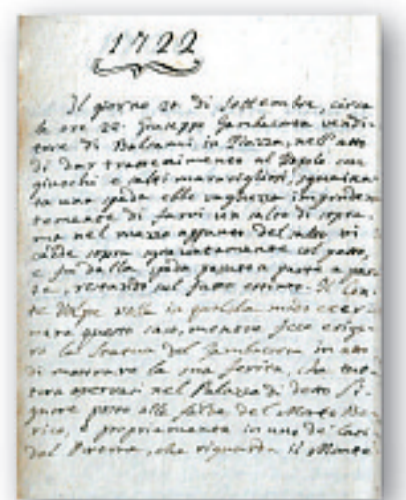 1722
Il giorno 20 di Settembre, circa
le ore 22 Giuseppe Gambacorta vendi-
tore di Balsami in Piazza, nell'atto
di dar trattenimento al Popolo con
giuochi e salti maravigliosi, sguaina-
ta una spada ebbe vaghezza impruden-
temente di farvi un salto di sopra,
ma nel mezzo appunto del salto vi
cadde sopra sgraziatamente col petto,
e fu dalla spada passato a parte a par-
te, restando sul fatto estinto. Il Con-
te Volpe volle in qualche modo eter-
nare questo caso, mentre fece erige-
re la Statua del Gambacorta in atto
di mostrare la sua ferita, che tut-
tora osservasi nel Palazzo di detto Si-
gnore posto alle falde del Monte Be-
rico, e propriamente in uno de'
del che riguarda il Monte